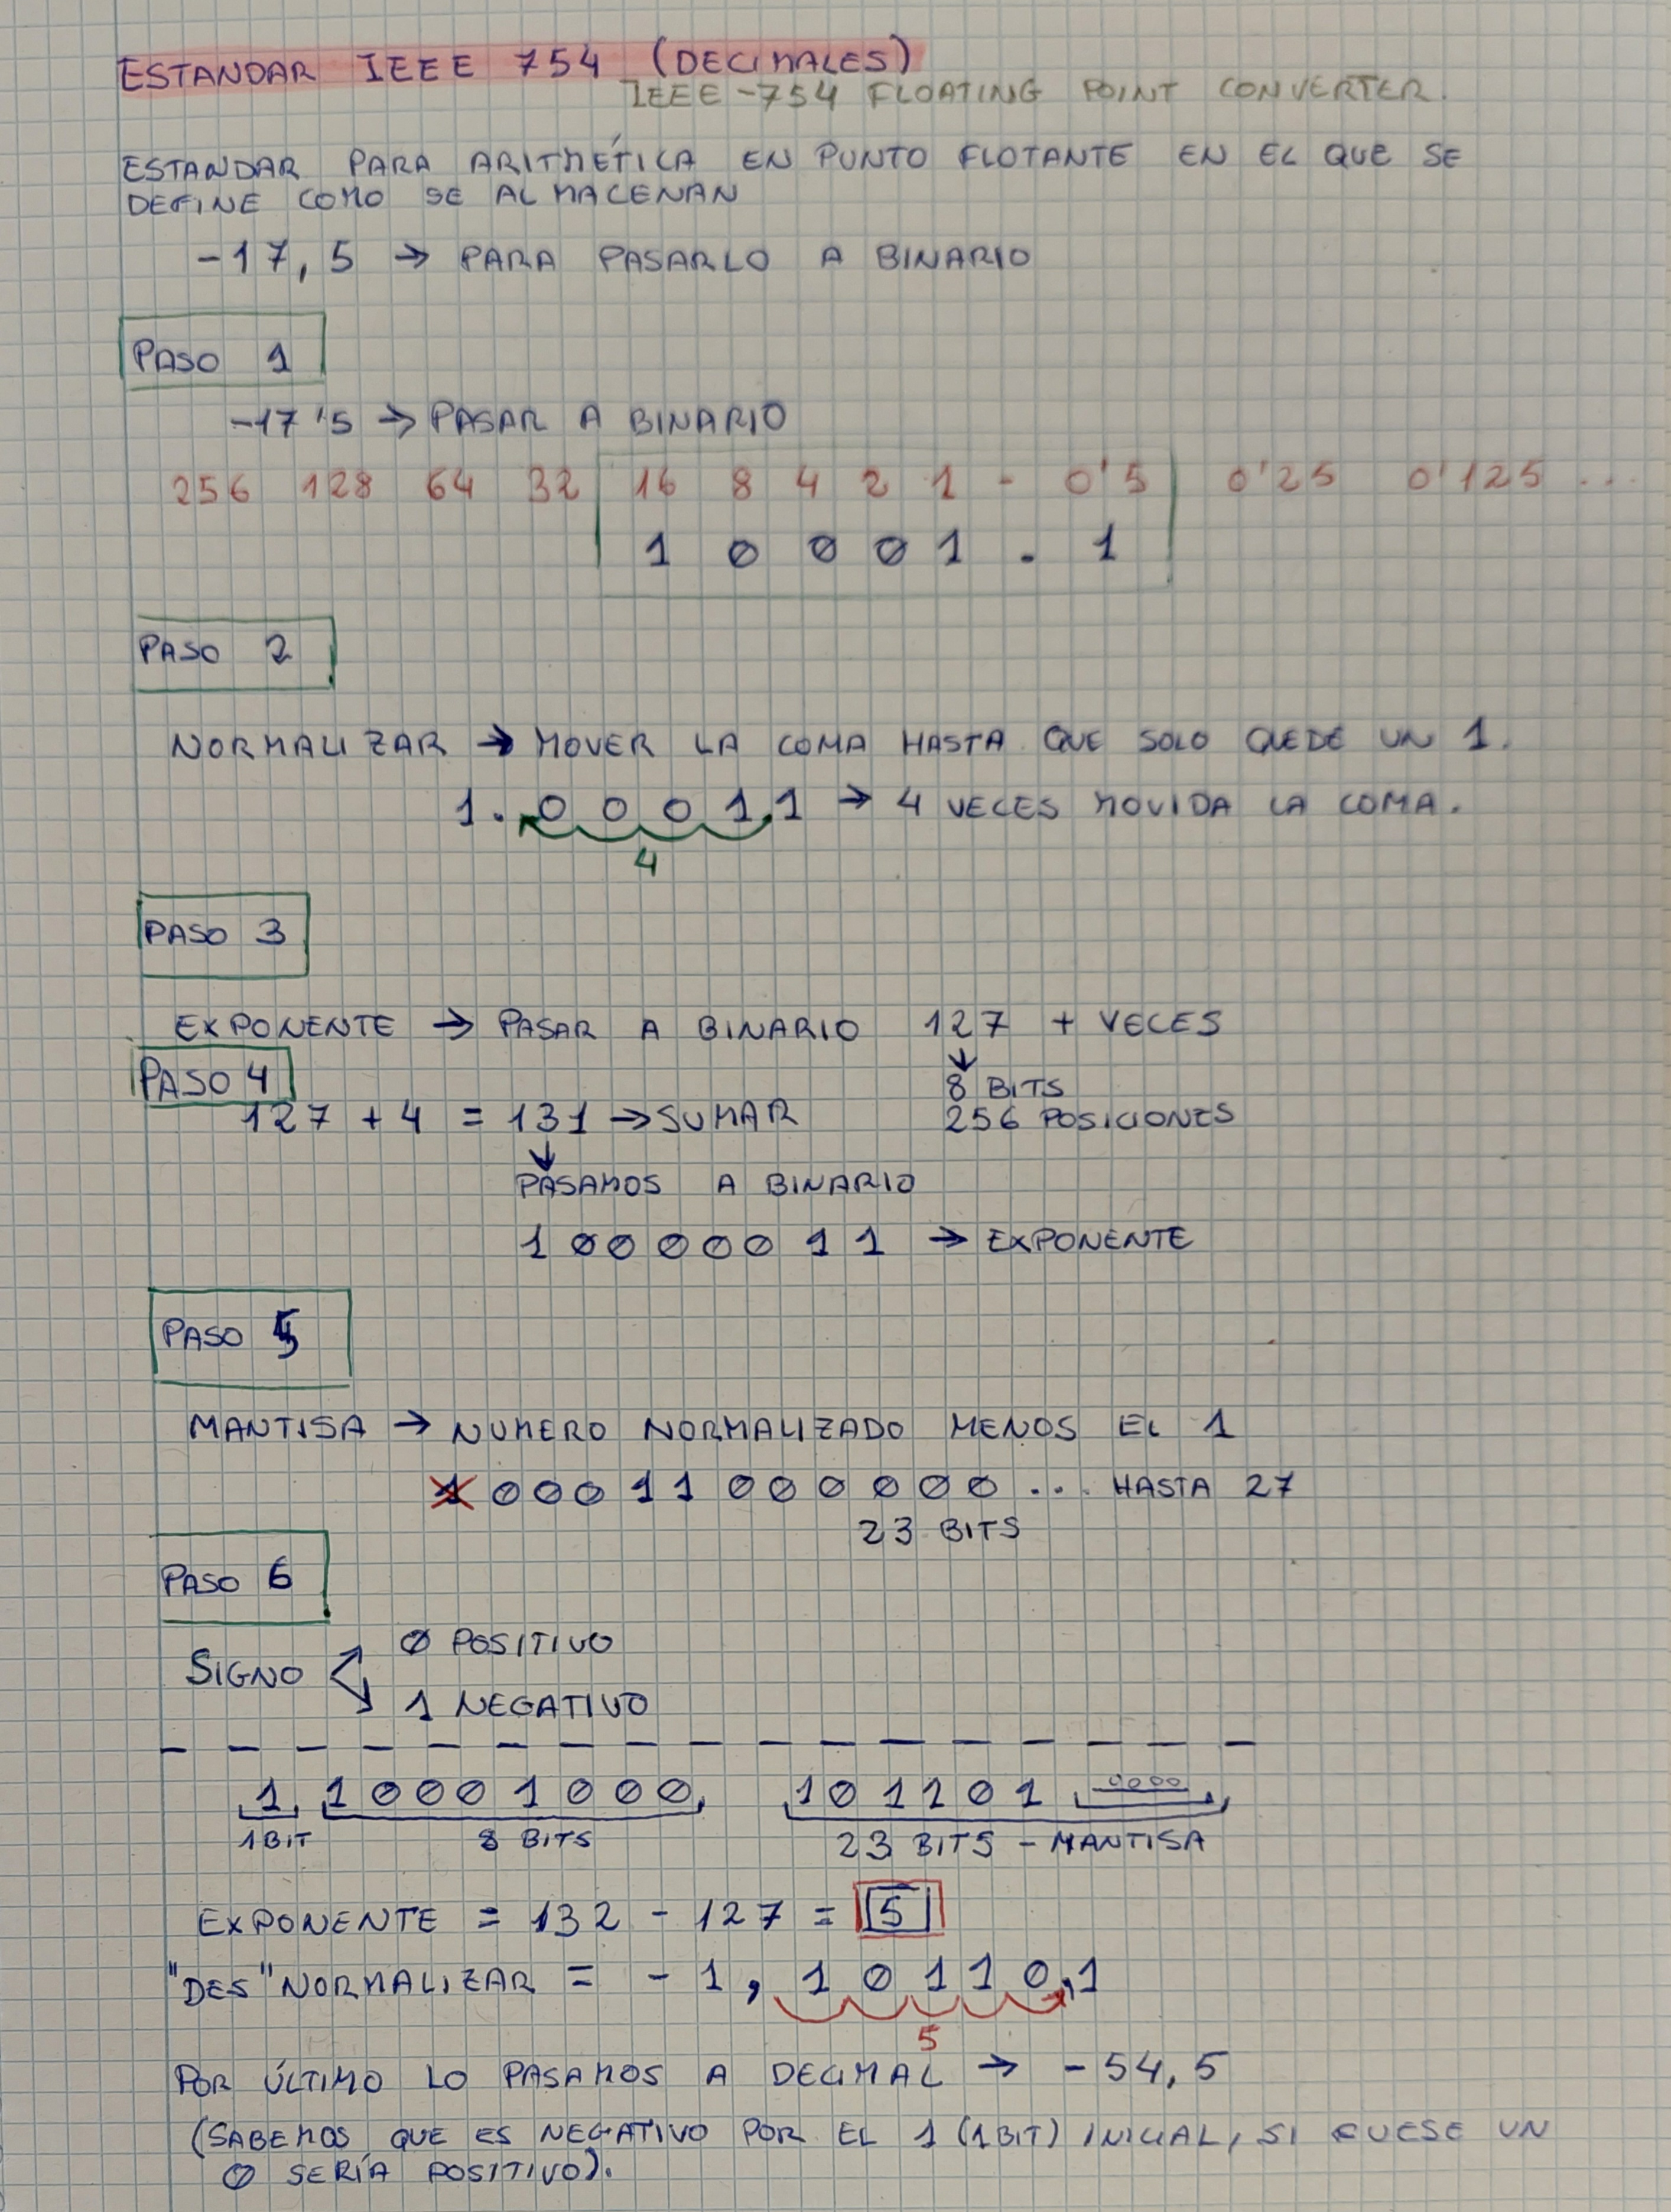 ESTANDAR IEEE 754 (DECIMALES)
IEEE-754 FLOATING POINT CONVERTER.
ESTANDAR PARA ARITMÉTICA EN PUNTO FLOTANTE EN EL QUE SE
DEFINE COMO SE ALMACENAN
-17,5 → PARA PASARLO A BINARIO
PASO 1
-17'5 → PASAR A BINARIO
256 128 64 32 16 8 4 2 1 - 0'5 0'25 0'125 ...
1 0 0 0 1 . 1
PASO 2
NORMALIZAR → MOVER LA COMA HASTA QUE SOLO QUEDE UN 1.
1. 0 0 0 1,1 → 4 VECES MOVIDA LA COMA.
4
PASO 3
EXPONENTE → PASAR A BINARIO 127 + VECES
↓
8 BITS
256 POSICIONES
PASO 4
127 + 4 = 131 → SUMAR
↓
PASAMOS A BINARIO
1 0 0 0 0 0 1 1 → EXPONENTE
PASO 5
MANTISA → NUMERO NORMALIZADO MENOS EL 1
1 0 0 0 1 1 0 0 0 0 0 0 ... HASTA 27
23 BITS
PASO 6
SIGNO
0 POSITIVO
1 NEGATIVO
1 1 0 0 0 1 0 0 0 1 0 1 1 0 1 0000
1 BIT 8 BITS 23 BITS - MANTISA
EXPONENTE = 132 - 127 = 5
"DES"NORMALIZAR = - 1, 1 0 1 1 0,1
5
POR ÚLTIMO LO PASAMOS A DECIMAL → -54,5
(SABEMOS QUE ES NEGATIVO POR EL 1 (1BIT) INICIAL, SI FUESE UN
0 SERÍA POSITIVO).